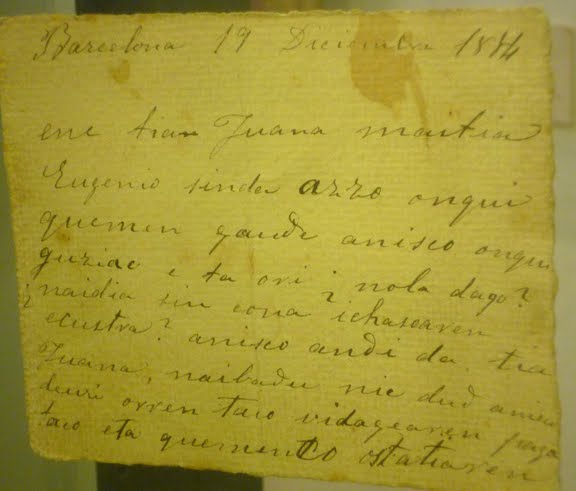 Barcelona 19 Diciembre 1884
ene tian Juana maitia
Eugenio sinda azzo ongui
quemen gaude anisco ongui
guziac e ta ori ¿ nola dago?
¿ naidia sin cona? ichasoaren
ecustra? anisco andi da. tia
Juana, naibadu nic dud
deuri orren taco vidagearen
taco eta quemenco ostatiaren